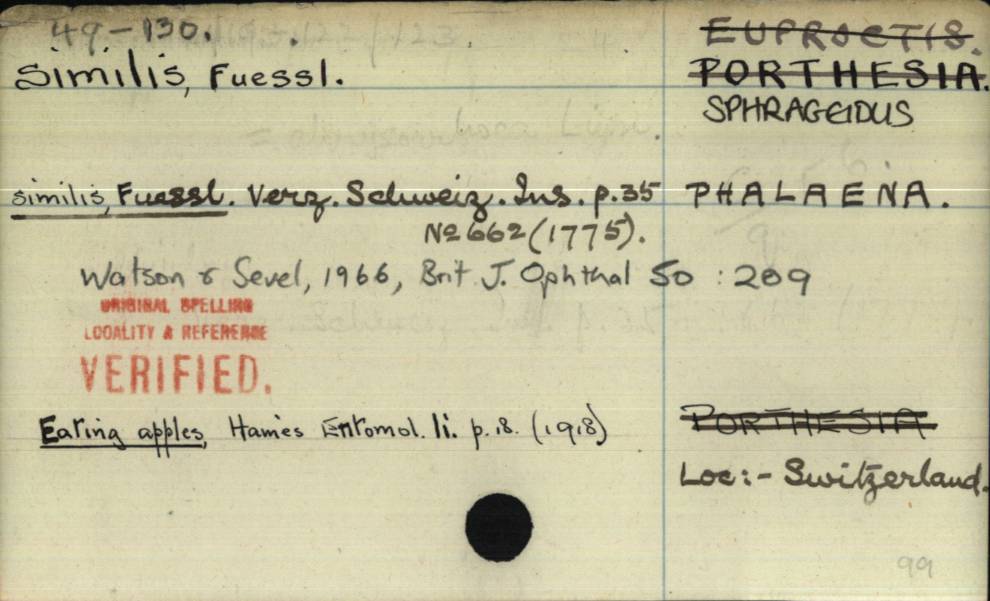 49.-130.
EUPROCTIS.
Similis, Fuessl.
PORTHESIA.
SPHRAGEIDUS
similis, Fuessl. Verz. Schweiz. Ins. p.35
PHALAENA.
No 662 (1775).
Watson & Sevel, 1966, Brit J. Ophthal 50 : 209
ORIGINAL SPELLING
LOCALITY & REFERENCE
VERIFIED.
Eating apples, Haines Entomol. li. p.18. (1918)
PORTHESIA
Loc:- Switzerland.
99